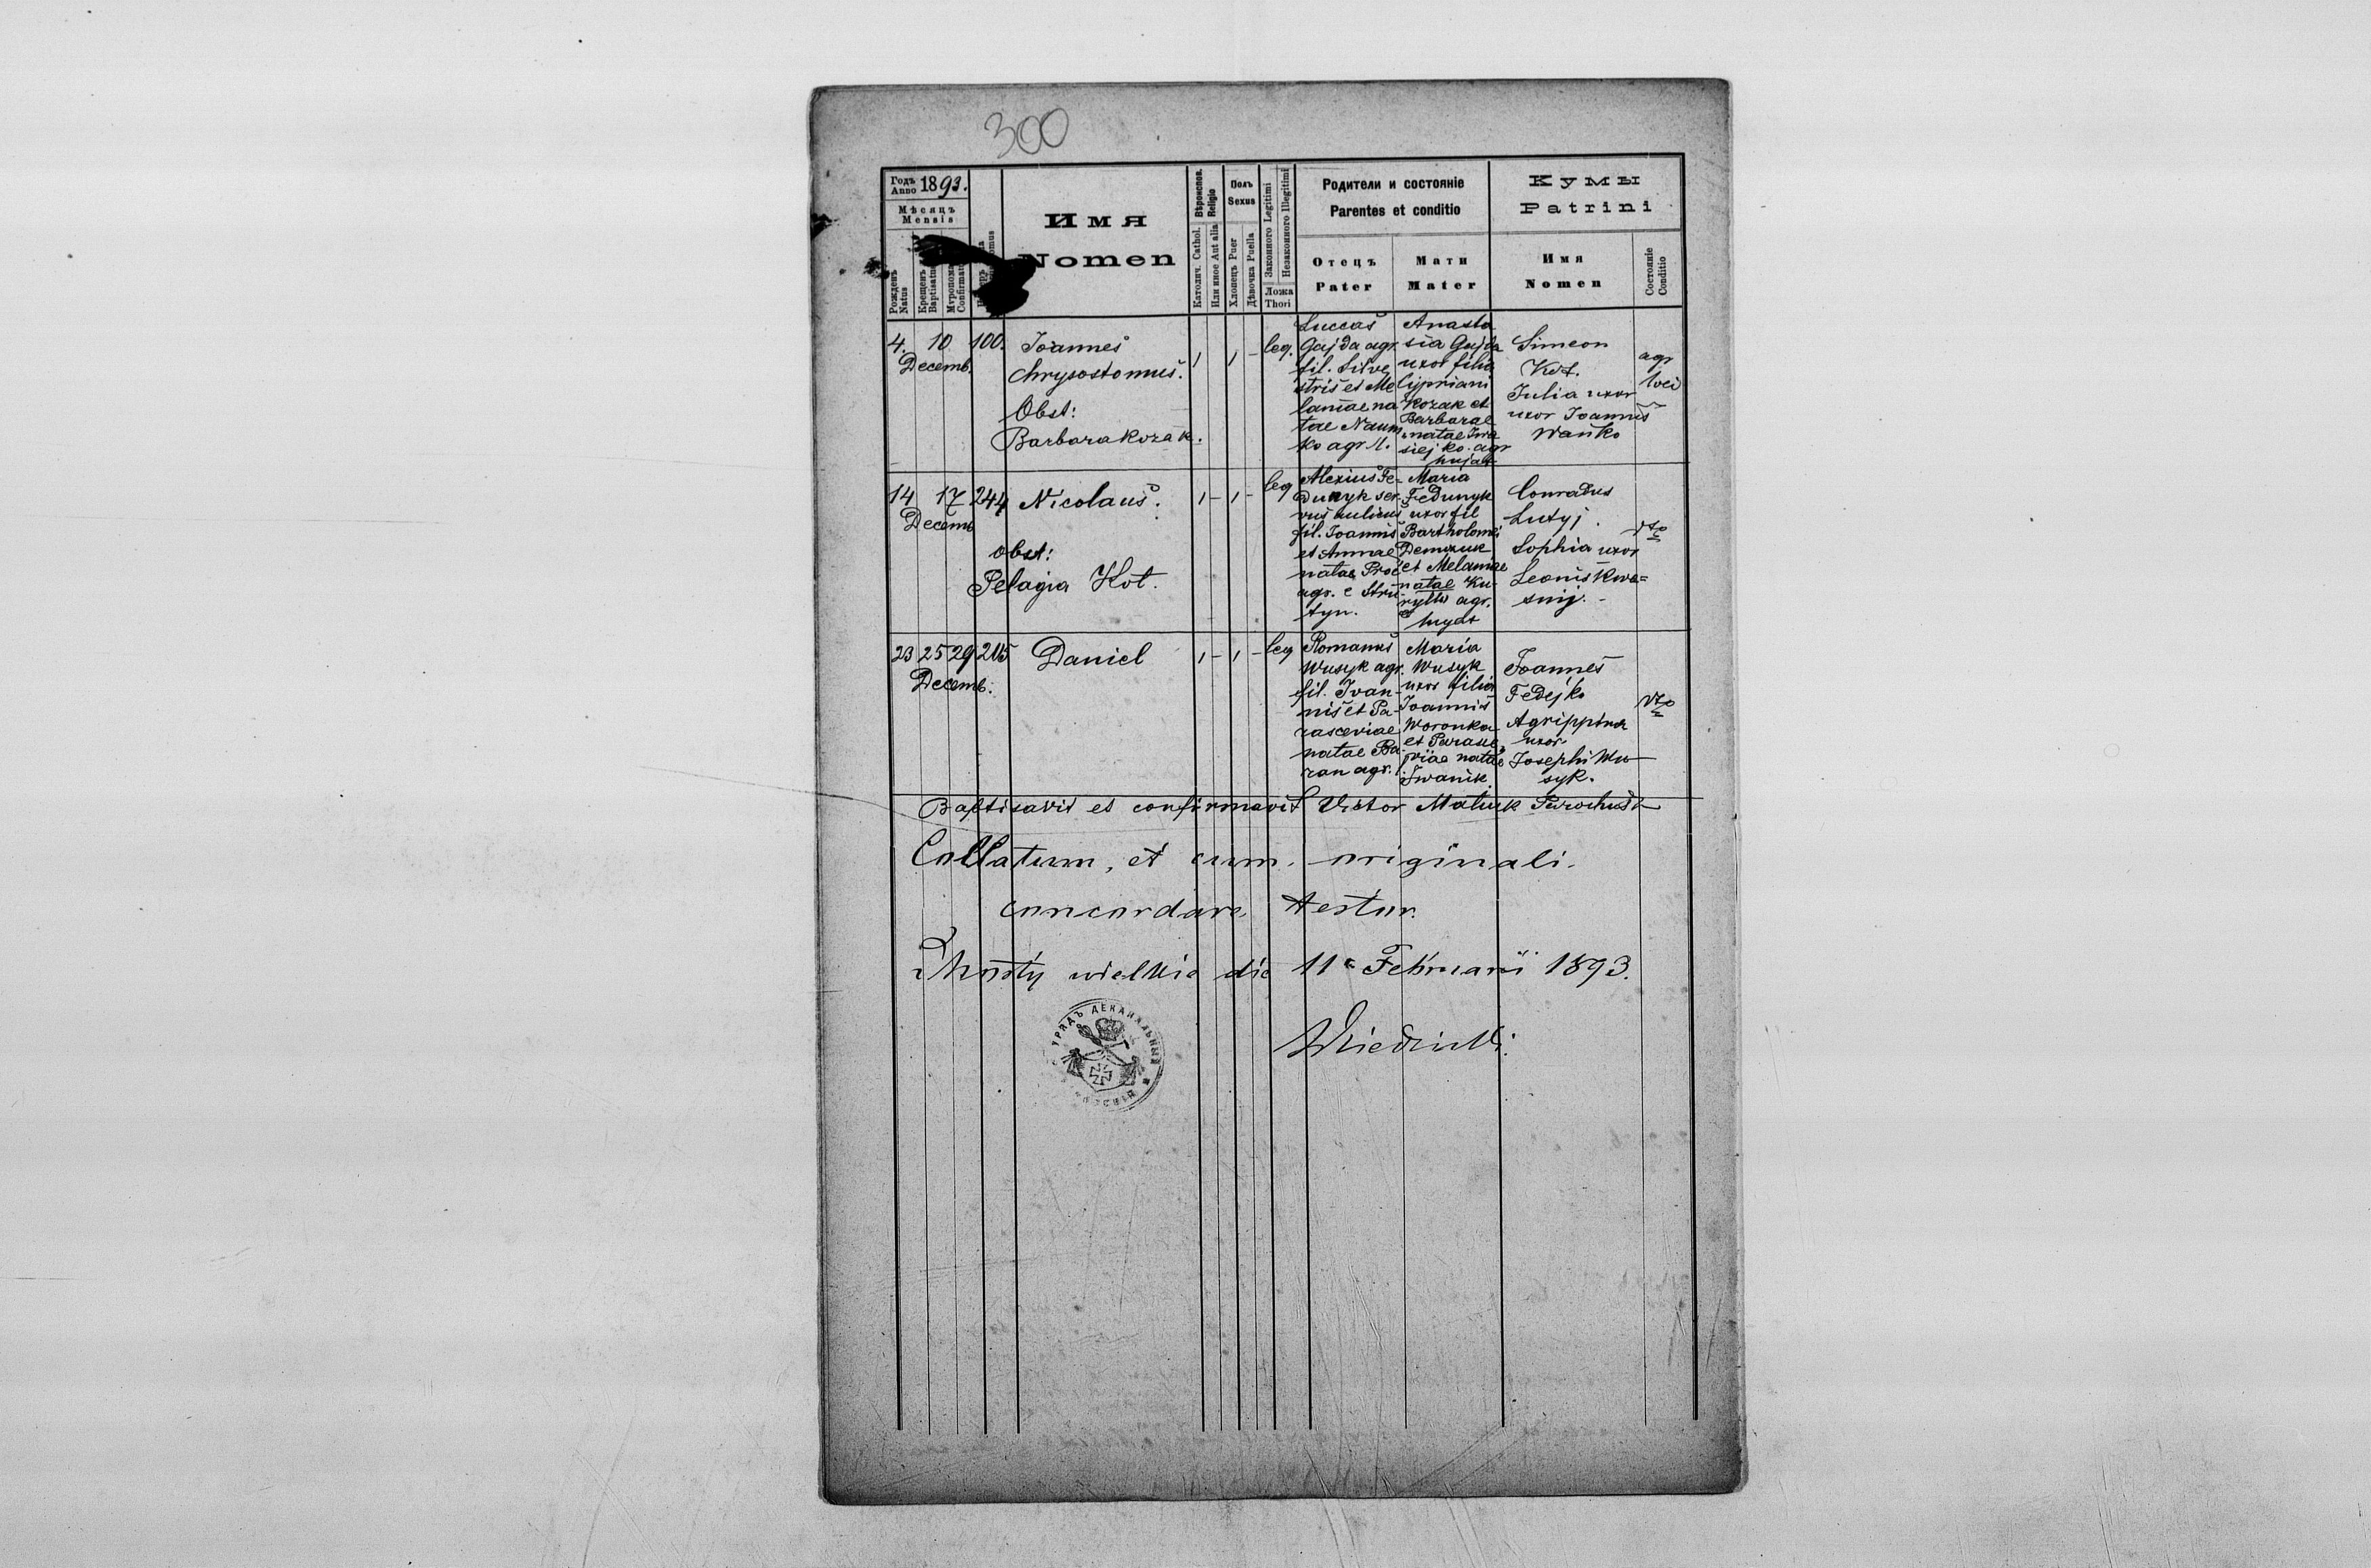 300
Годъ Anno 1893.
Мѣсяцъ
Mensis
Рожденъ Natus
Крещенъ Baptisatus
Мѵропома Confirmatus
Имя
Nomen
Вѣроиспов. Religio
Католич. Cathol.
Или иное Aut alia
Полъ
Sexus
Хлопець Puer
Дѣвочка Puella
Законного Legitimi
Незаконного Illegitimi
Ложа
Thori
Родители и состоянiе
Parentes et conditio
Отецъ
Pater
Мати
Mater
Кумы
Patrini
Имя
Nomen
Состоянiе
Conditio
4. 10 100.
Decemb.
Joannes
Chrysostomus.
Obst:
Barbara Kozak.
1 1 - leg.
Luccas
Gajda agr.
fil. Silve
stris et Me
laniae na
tae Naum
ko agr.
Anasta
sia Gajda
uxor filia
Cypriani
Kozak et
Barbarae
natae Iwa
siejko agr
hujat
Simeon
Kot.
Julia uxor
uxor Joannis
Wańko
agr
loci
14 17 244
Decemb
Nicolaus.
obst:
Pelagia Kot.
1 - 1 - leg
Alexius Fe-
dunyk ser
vus aulicus
fil. Joannis
et Annae
natae Proc
agr. e Stru
tyn.
Maria
Fedunyk
uxor fil
Bartholomei
Demczuk
et Melaniae
natae Ku-
ryllo agr.
hujat
Conradus
Lutyj.
Sophia uxor
Leonis Kwa=
snij.
vto
23 25 29 215
Decemb.
Daniel
1 - 1 - leg
Romanus
Wusyk agr.
fil. Ioan-
nis et Pa-
rasceviae
natae Ba-
ran agr.
Maria
Wusyk
uxor filia
Joannis
Woronka
et Parasce
viae natae
Iwanik
Joannes
Fedejko
Agrippina
uxor
Josephi Wu
syk.
vto
Baptisavit et confirmavit Victor Matiuk Parochus
Collatum, et cum originali
concordare testor.
Mosty wielkie die 11 Februarii 1893.
УРЯДЪ ДЕКАНАЛЬНЫЙ